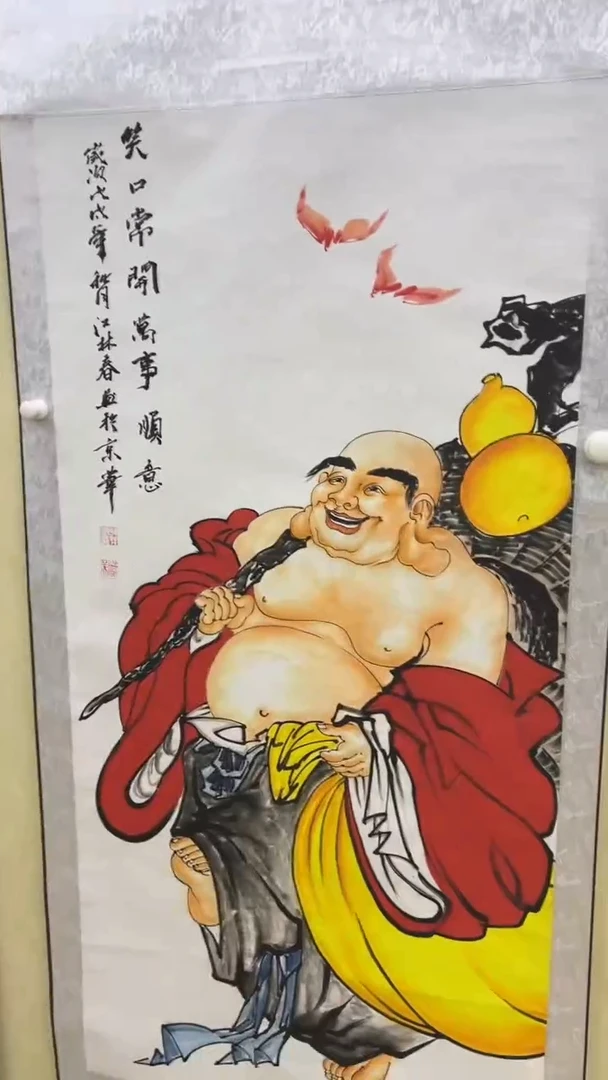 笑口常開萬事順意
歲次戊戌年秋月江林春於京華